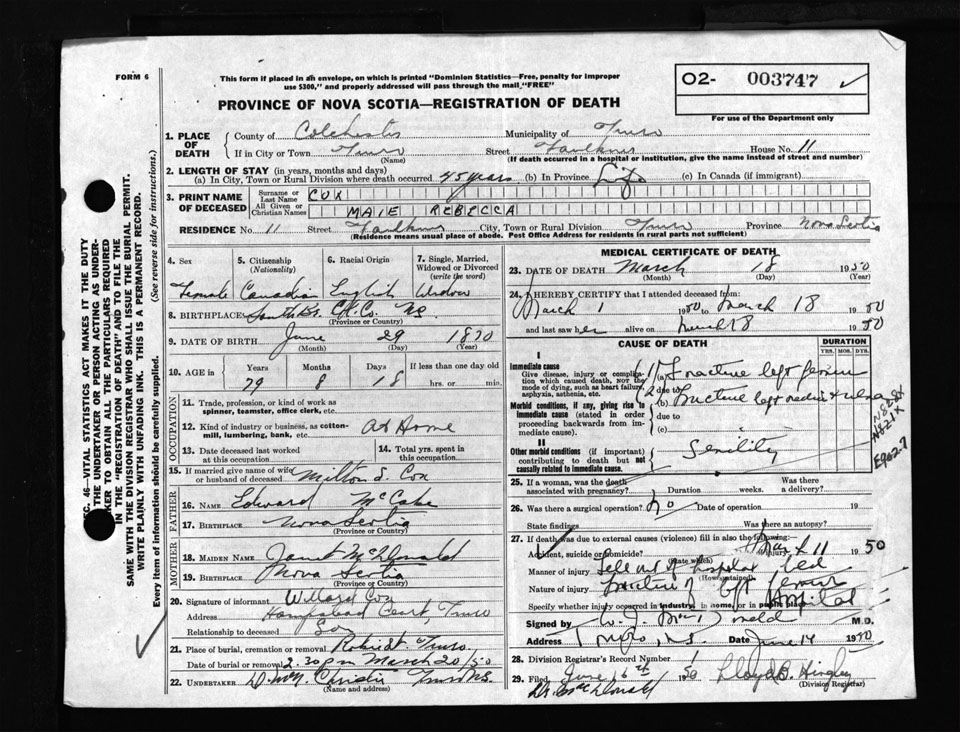 FORM 6
This form if placed in an envelope, on which is printed "Dominion Statistics—Free, penalty for improper
use $300," and properly addressed will pass through the mail "FREE"
O2- 003747 ✓
For use of the Department only
PROVINCE OF NOVA SCOTIA—REGISTRATION OF DEATH
1. PLACE OF DEATH
County of Colchester Municipality of Truro
If in City or Town Truro Street Faulkner House No. 11
(Name) (If death occurred in a hospital or institution, give the name instead of street and number)
2. LENGTH OF STAY (in years, months and days)
(a) In City, Town or Rural Division where death occurred 45 years (b) In Province Life (c) In Canada (if immigrant)
3. PRINT NAME OF DECEASED
Surname or Last Name COX
All Given or Christian Names MAIE REBECCA
RESIDENCE No. 11 Street Faulkner City, Town or Rural Division Truro Province Nova Scotia
(Residence means usual place of abode. Post Office Address for residents in rural parts not sufficient)
4. Sex 5. Citizenship (Nationality) 6. Racial Origin 7. Single, Married, Widowed or Divorced (write the word)
Female Canadian English Widow
8. BIRTHPLACE South Br. Col. Co. NS
(Province or Country)
9. DATE OF BIRTH June 29 1870
(Month) (Day) (Year)
10. AGE in Years Months Days If less than one day old
79 8 18 hrs. or min.
OCCUPATION
11. Trade, profession, or kind of work as spinner, teamster, office clerk, etc.
12. Kind of industry or business, as cotton-mill, lumbering, bank, etc. At Home
13. Date deceased last worked at this occupation 14. Total yrs. spent in this occupation
15. If married give name of wife or husband of deceased Milton S. Cox
FATHER
16. Name Edward McCabe
17. Birthplace Nova Scotia
(Province or Country)
MOTHER
18. MAIDEN NAME Janet McDonald
19. BIRTHPLACE Nova Scotia
(Province or Country)
20. Signature of informant Willard Cox
Address Court, Truro
Relationship to deceased Son
21. Place of burial, cremation or removal Robie St Truro
Date of burial or removal 2.30 pm March 20/50
22. UNDERTAKER Christie Truro N.S.
(Name and address)
MEDICAL CERTIFICATE OF DEATH
23. DATE OF DEATH March 18 1950
(Month) (Day) (Year)
24. I HEREBY CERTIFY that I attended deceased from:
March 1 1950 to March 18 1950
and last saw her alive on March 18 1950
CAUSE OF DEATH DURATION
YRS. MOS. DYS.
I
Immediate cause
Give disease, injury or complication which caused death, NOT the mode of dying, such as heart failure, asphyxia, asthenia, etc.
1 (a) Fracture left femur
2 due to
(b) Fracture left radius & ulna
Morbid conditions, if any, giving rise to immediate cause (stated in order proceeding backwards from immediate cause).
due to
(c)
II
Other morbid conditions (if important) contributing to death but not causally related to immediate cause. Senility
E902-7
25. If a woman, was the death associated with pregnancy? Duration weeks. Was there a delivery?
26. Was there a surgical operation? No Date of operation 19
State findings Was there an autopsy?
27. If death was due to external causes (violence) fill in also the following:
Accident, suicide or homicide? (State which) Date of injury March 11 1950
Manner of injury Fell out of hospital bed
(How sustained)
Nature of injury Fracture of left femur
Specify whether injury occurred in industry, in home, or in public place Hospital
Signed by W. J. McDonald M.D.
Address Truro, N.S. Date June 14 1950
28. Division Registrar's Record Number
29. Filed June 1950 Lloyd B. Hingley
(Division Registrar)
Dr. McDonald
SEC. 46—VITAL STATISTICS ACT MAKES IT THE DUTY
OF THE UNDERTAKER OR PERSON ACTING AS UNDERTAKER TO OBTAIN ALL THE PARTICULARS REQUIRED
IN THE "REGISTRATION OF DEATH" AND TO FILE THE
SAME WITH THE DIVISION REGISTRAR WHO SHALL ISSUE THE BURIAL PERMIT.
WRITE PLAINLY WITH UNFADING INK. THIS IS A PERMANENT RECORD.
Every item of information should be carefully supplied. (See reverse side for instructions.)